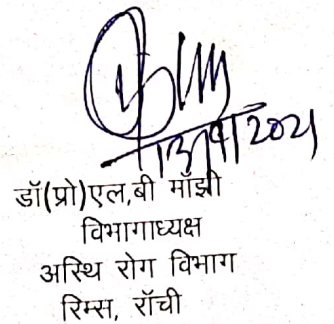 डॉ(प्रो)एल,बी माँझी
विभागाध्यक्ष
अस्थि रोग विभाग
रिम्स, राँची